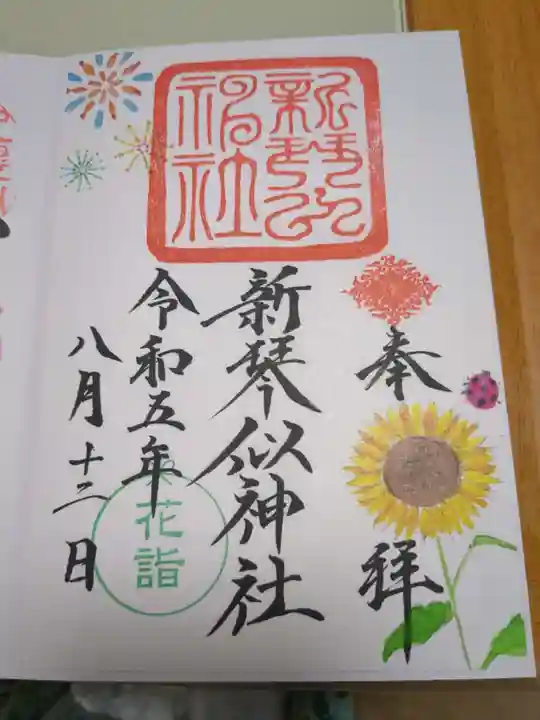 奉拝
新琴似神社
令和五年
八月十二日
新琴似
神社
花詣